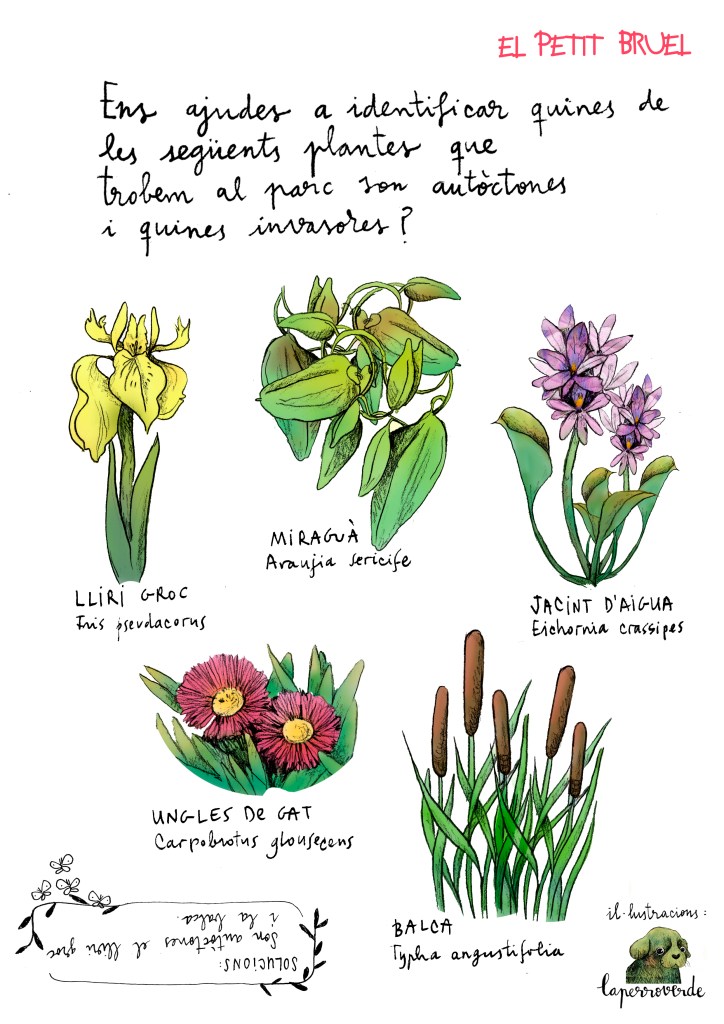 EL PETIT BRUEL
Ens ajudes a identificar quines de
les següents plantes que
trobem al parc son autòctones
i quines invasores?
MIRAGUÀ
Araujia sericife
LLIRI GROC
Iris pseudacorus
JACINT D'AIGUA
Eichornia crassipes
UNGLES DE GAT
Carpobrotus glousecens
BALCA
Typha angustifolia
il·lustracions:
laperroverde
SOLUCIONS:
Son autòctones el lliri groc
i la balca.